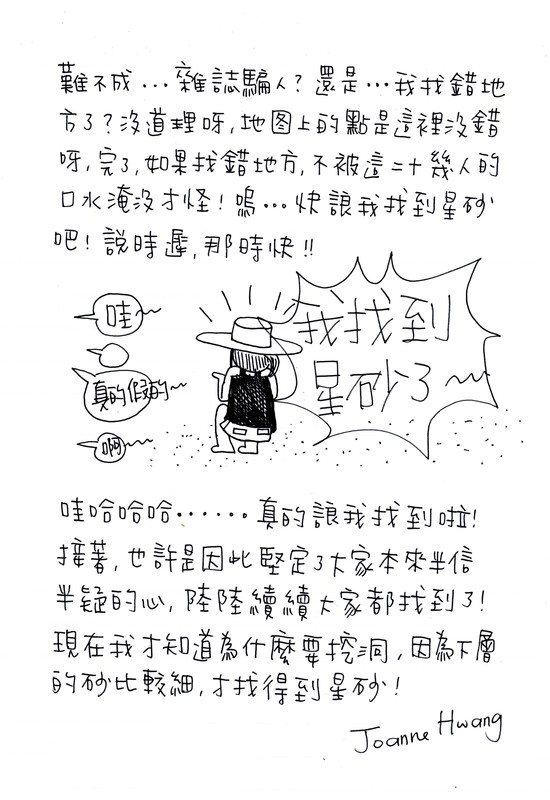 難不成...雜誌騙人?還是...我找錯地
方了?沒道理呀,地图上的點是這裡沒錯
呀,完了,如果找錯地方,不被這二十幾人的
口水淹沒才怪!嗚...快讓我找到星砂
吧!說時遲,那時快!!
哇~
真的假的~
啊~
我找到
星砂了~
哇哈哈哈......真的讓我找到啦!
接著,也許是因此堅定了大家本來半信
半疑的心,陸陸續續大家都找到了!
現在我才知道為什麼要挖洞,因為下層
的砂比較細,才找得到星砂!
Joanne Hwang